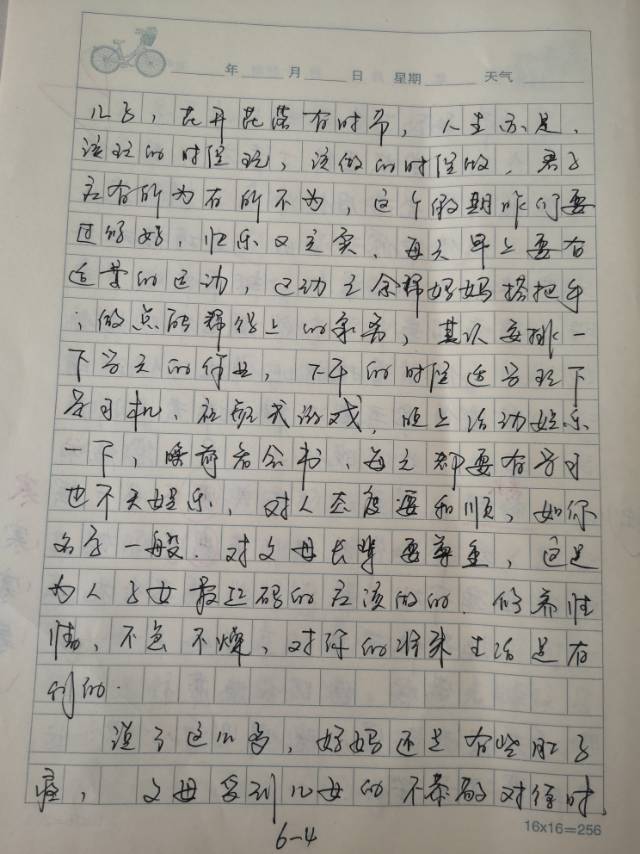 年 月 日 星期 天气
儿飞，花开花落有时节，人生亦是，
该玩的时候玩，该做的时候做，君子
应有所为有所不为，这个假期咱们要
过的好，快乐又充实，每天早上要有
适量的运动，运动之余帮妈妈搭把手
；做点能帮得上的家务，其次安排一
下当天的作业，下午的时候适当玩下
学习机、社 式游戏，晚上活动娱乐
一下，睡前看会书，每天都要有学习
也不失娱乐，对人态度要和顺，如你
名字一般。对父母长辈要尊重，这是
为人子女最起码的应该做的。修养性
情，不急不燥，对你的将来生活是有
利的。
说了这么多，好妈还是有些
，父母受到儿女的不恭敬对待时
6-4
16×16=256